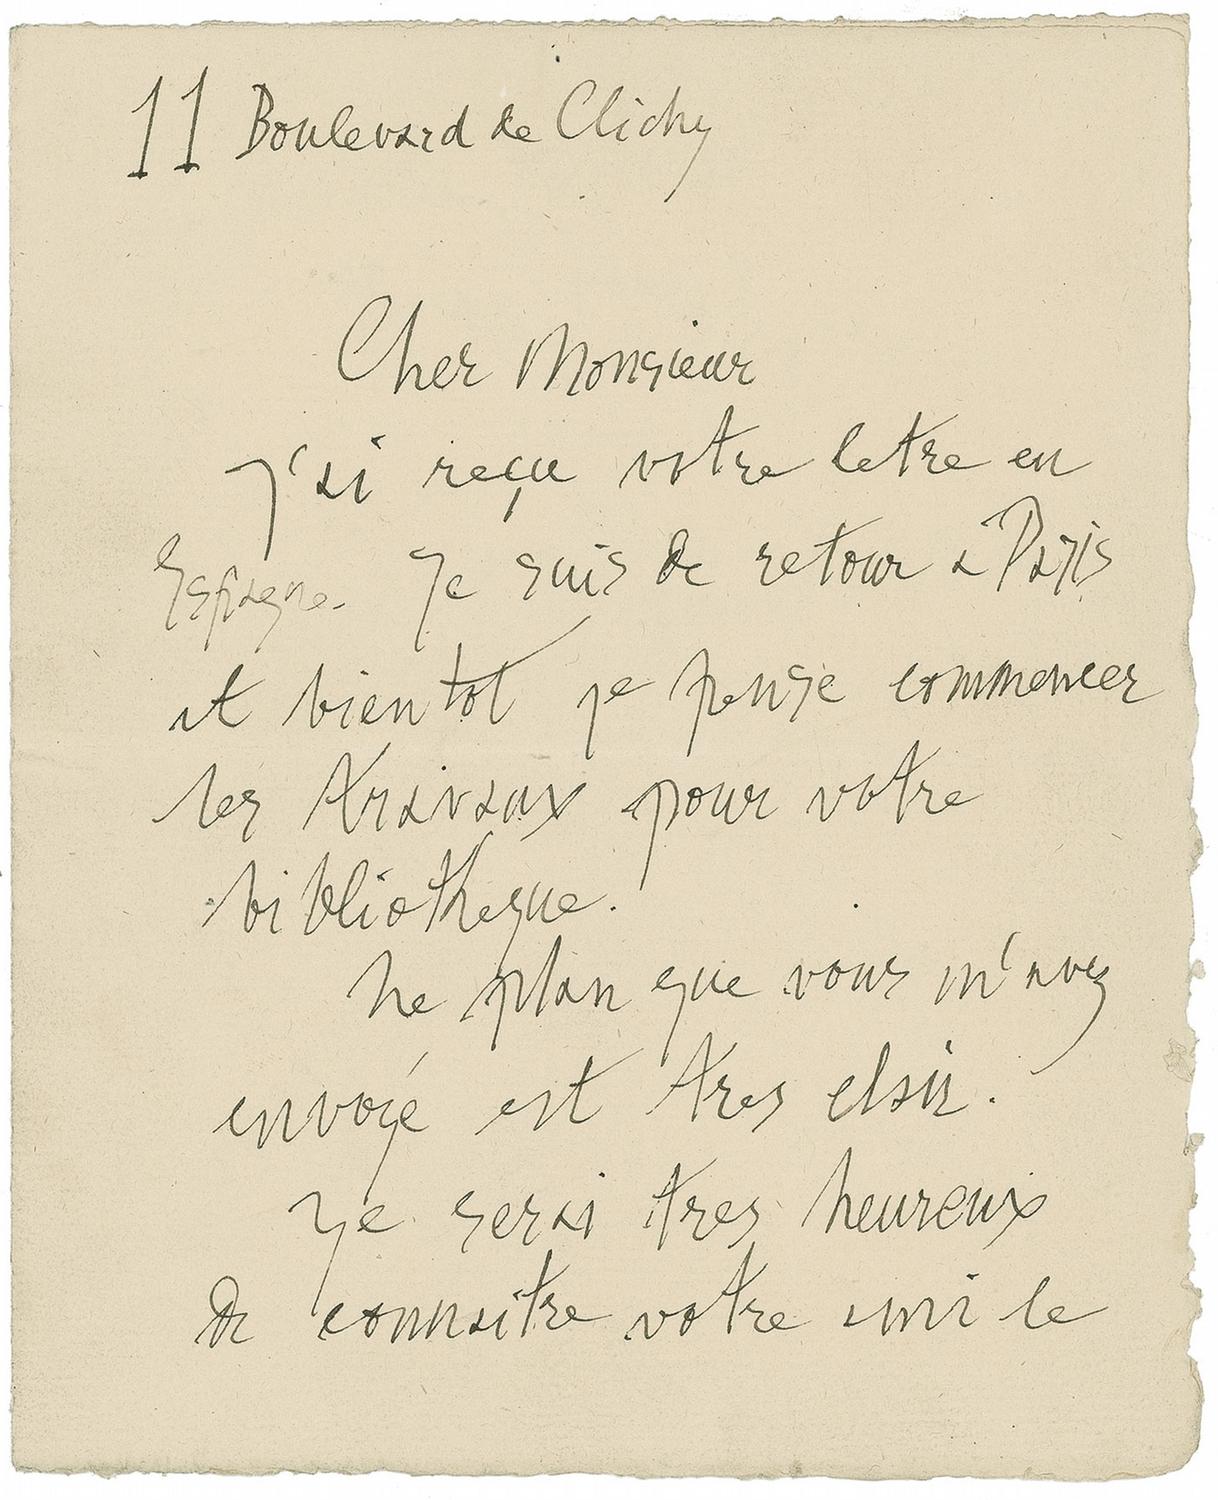 11 Boulevard de Clichy
Cher Monsieur
J'ai reçu votre letre en
Espagne. Je suis de retour a Paris
et bientot je pense commencer
les travaux pour votre
bibliotheque.
Le plan que vous m'avez
envoyé est tres clair.
Je serai tres heureux
de connaitre votre ami le